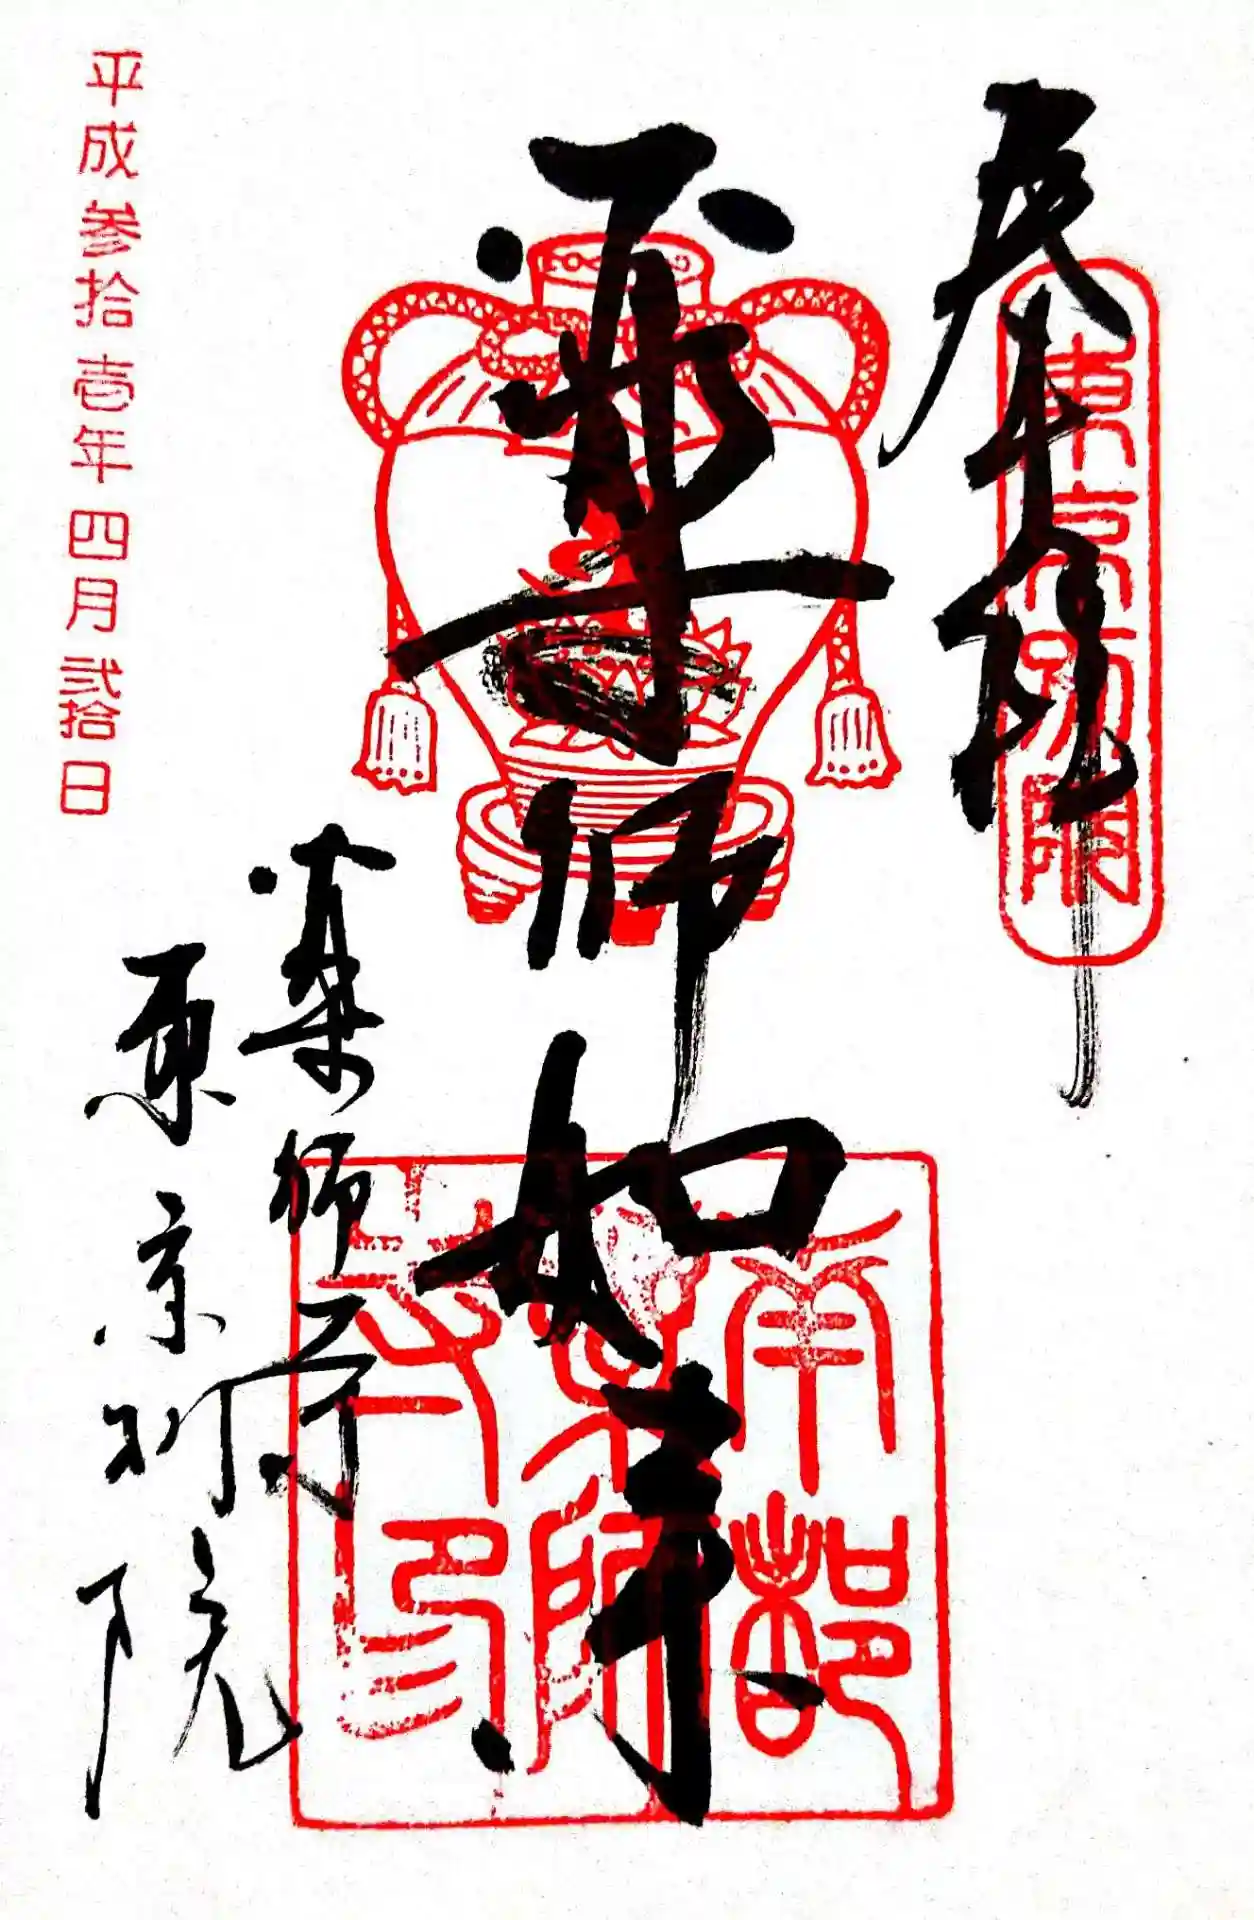 奉拝
東京別院
薬師如来
南都薬師寺印
薬師寺
東京別院
平成参拾壱年四月弐拾日